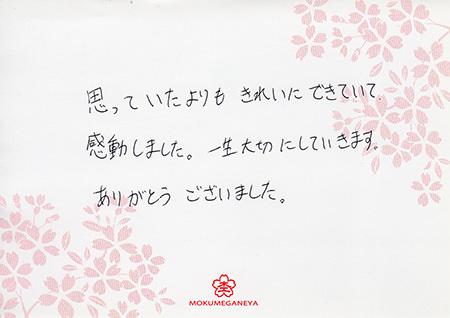 思っていたよりも きれいにできていて
感動しました。一生大切にしていきます。
ありがとう ございました。
MOKUMEGANEYA